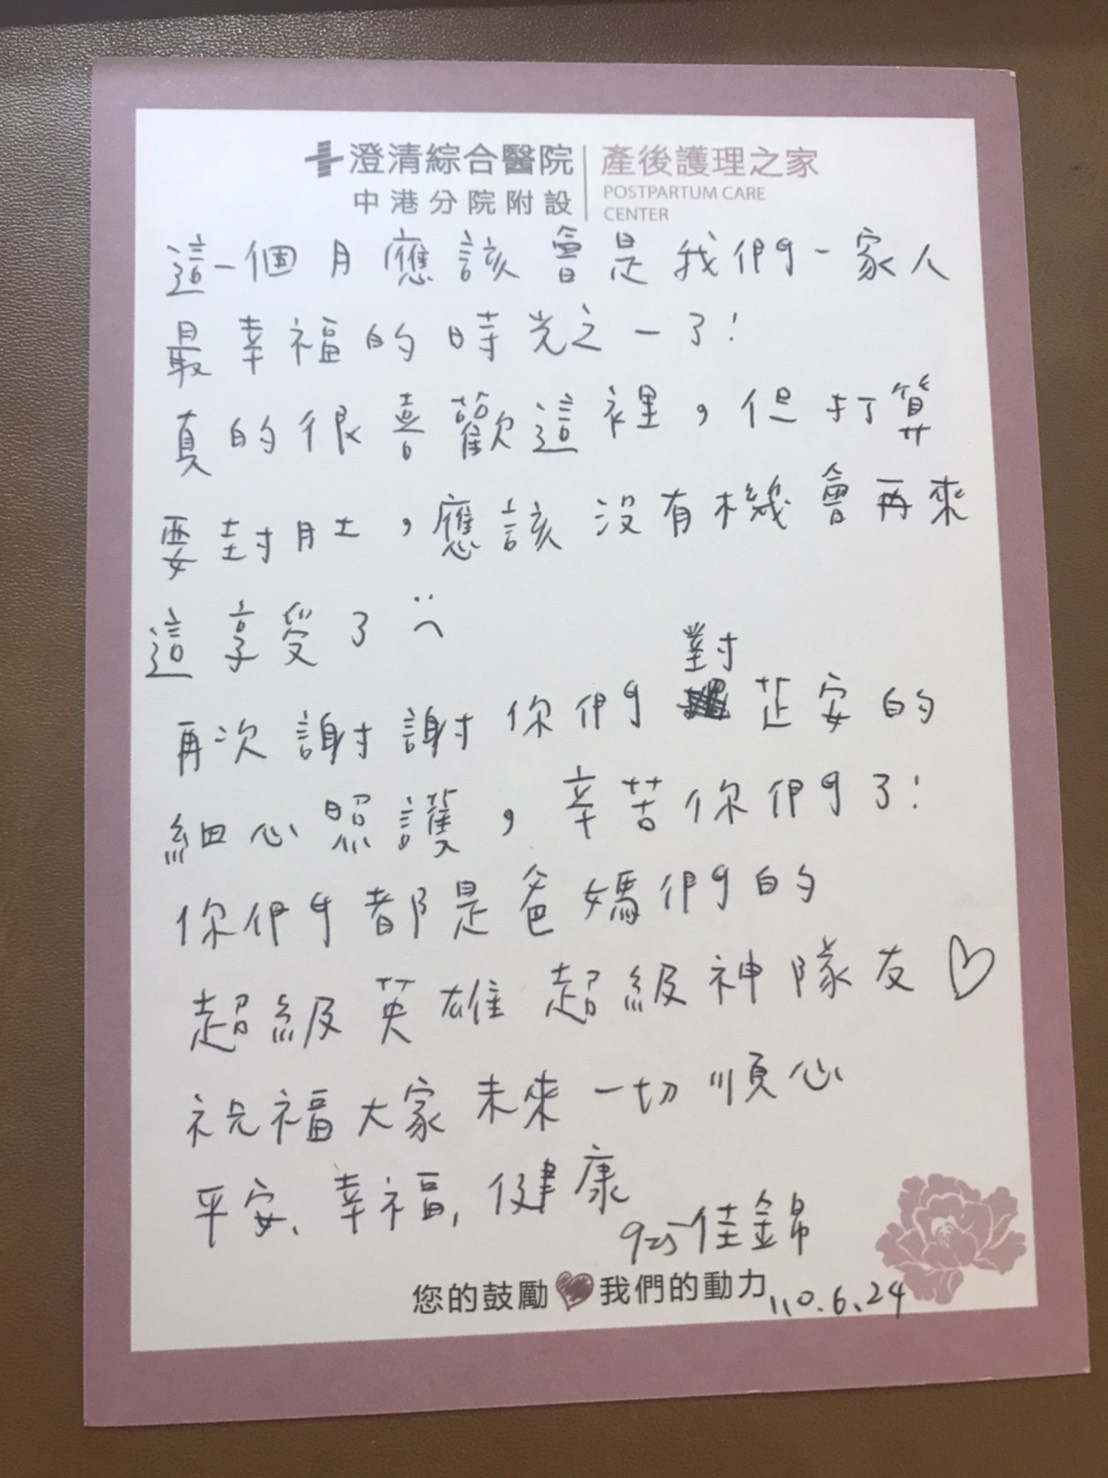 澄清綜合醫院
中港分院附設
產後護理之家
POSTPARTUM CARE
CENTER
這一個月應該會是我們一家人
最幸福的時光之一了!
真的很喜歡這裡，但打算
要封肚，應該沒有機會再來
這享受了
對
再次謝謝你們 芷安的
細心照護，辛苦你們了!
你們都是爸媽們的
超級英雄 超級神隊友♡
祝福大家未來一切順心
平安、幸福，健康
925佳錦
您的鼓勵♥我們的動力
110.6.24